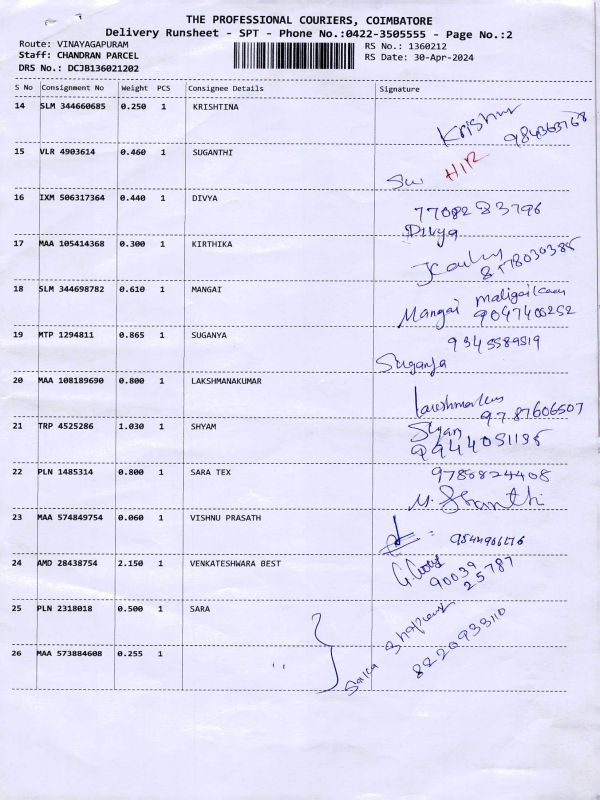 THE PROFESSIONAL COURIERS, COIMBATORE
Delivery Runsheet - SPT - Phone No.:0422-3505555 - Page No.:2
Route: VINAYAGAPURAM RS No.: 1360212
Staff: CHANDRAN PARCEL RS Date: 30-Apr-2024
DRS No.: DCJB136021202
S No Consignment No Weight PCS Consignee Details Signature
14 SLM 344660685 0.250 1 KRISHTINA
15 VLR 4903614 0.460 1 SUGANTHI
Su HIR
16 IXM 506317364 0.440 1 DIVYA
77082 83796
Divya
17 MAA 105414368 0.300 1 KIRTHIKA
18 SLM 344698782 0.610 1 MANGAI
Mangai
19 MTP 1294811 0.865 1 SUGANYA
9345589519
Suganya
20 MAA 108189690 0.800 1 LAKSHMANAKUMAR
97 87606507
21 TRP 4525286 1.030 1 SHYAM
Shyam
9944051195
22 PLN 1485314 0.800 1 SARA TEX
9786824408
M. Shanthi
23 MAA 574849754 0.060 1 VISHNU PRASATH
24 AMD 28438754 2.150 1 VENKATESHWARA BEST
90039
25787
25 PLN 2318018 0.500 1 SARA
26 MAA 573884608 0.255 1
8220933110